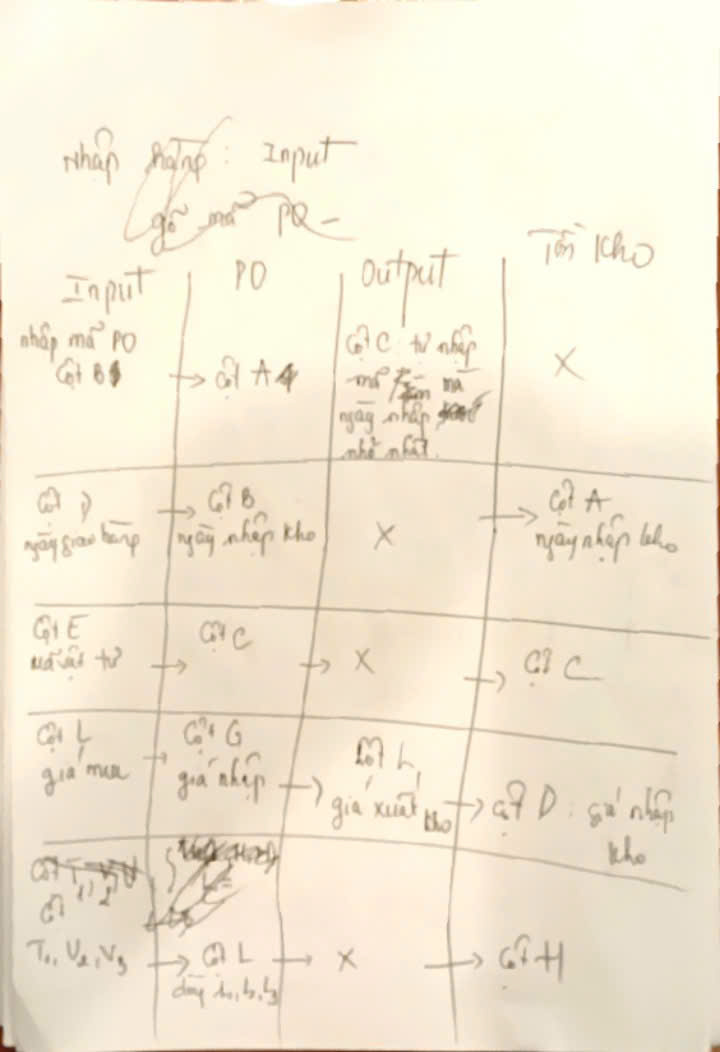 Nhập hàng : Input
gõ mã PO -
Input
PO
Output
Tồn Kho
nhập mã PO
Cột B
→ cột A
Cột C : tự nhập
mã tìm mã
ngày nhập
nhỏ nhất.
X
Cột D
ngày giao hàng
→ Cột B
ngày nhập kho
X
→ Cột A
ngày nhập kho
Cột E
mã vật tư
→ Cột C
→ X
→ Cột C
Cột L
giá mua
→ Cột G
giá nhập
→ Cột L
giá xuất kho
→ cột D : giá nhập
kho
Cột
T1, V2, V3
→ Cột L
dòng L1, L2, L3
→ X
→ cột H